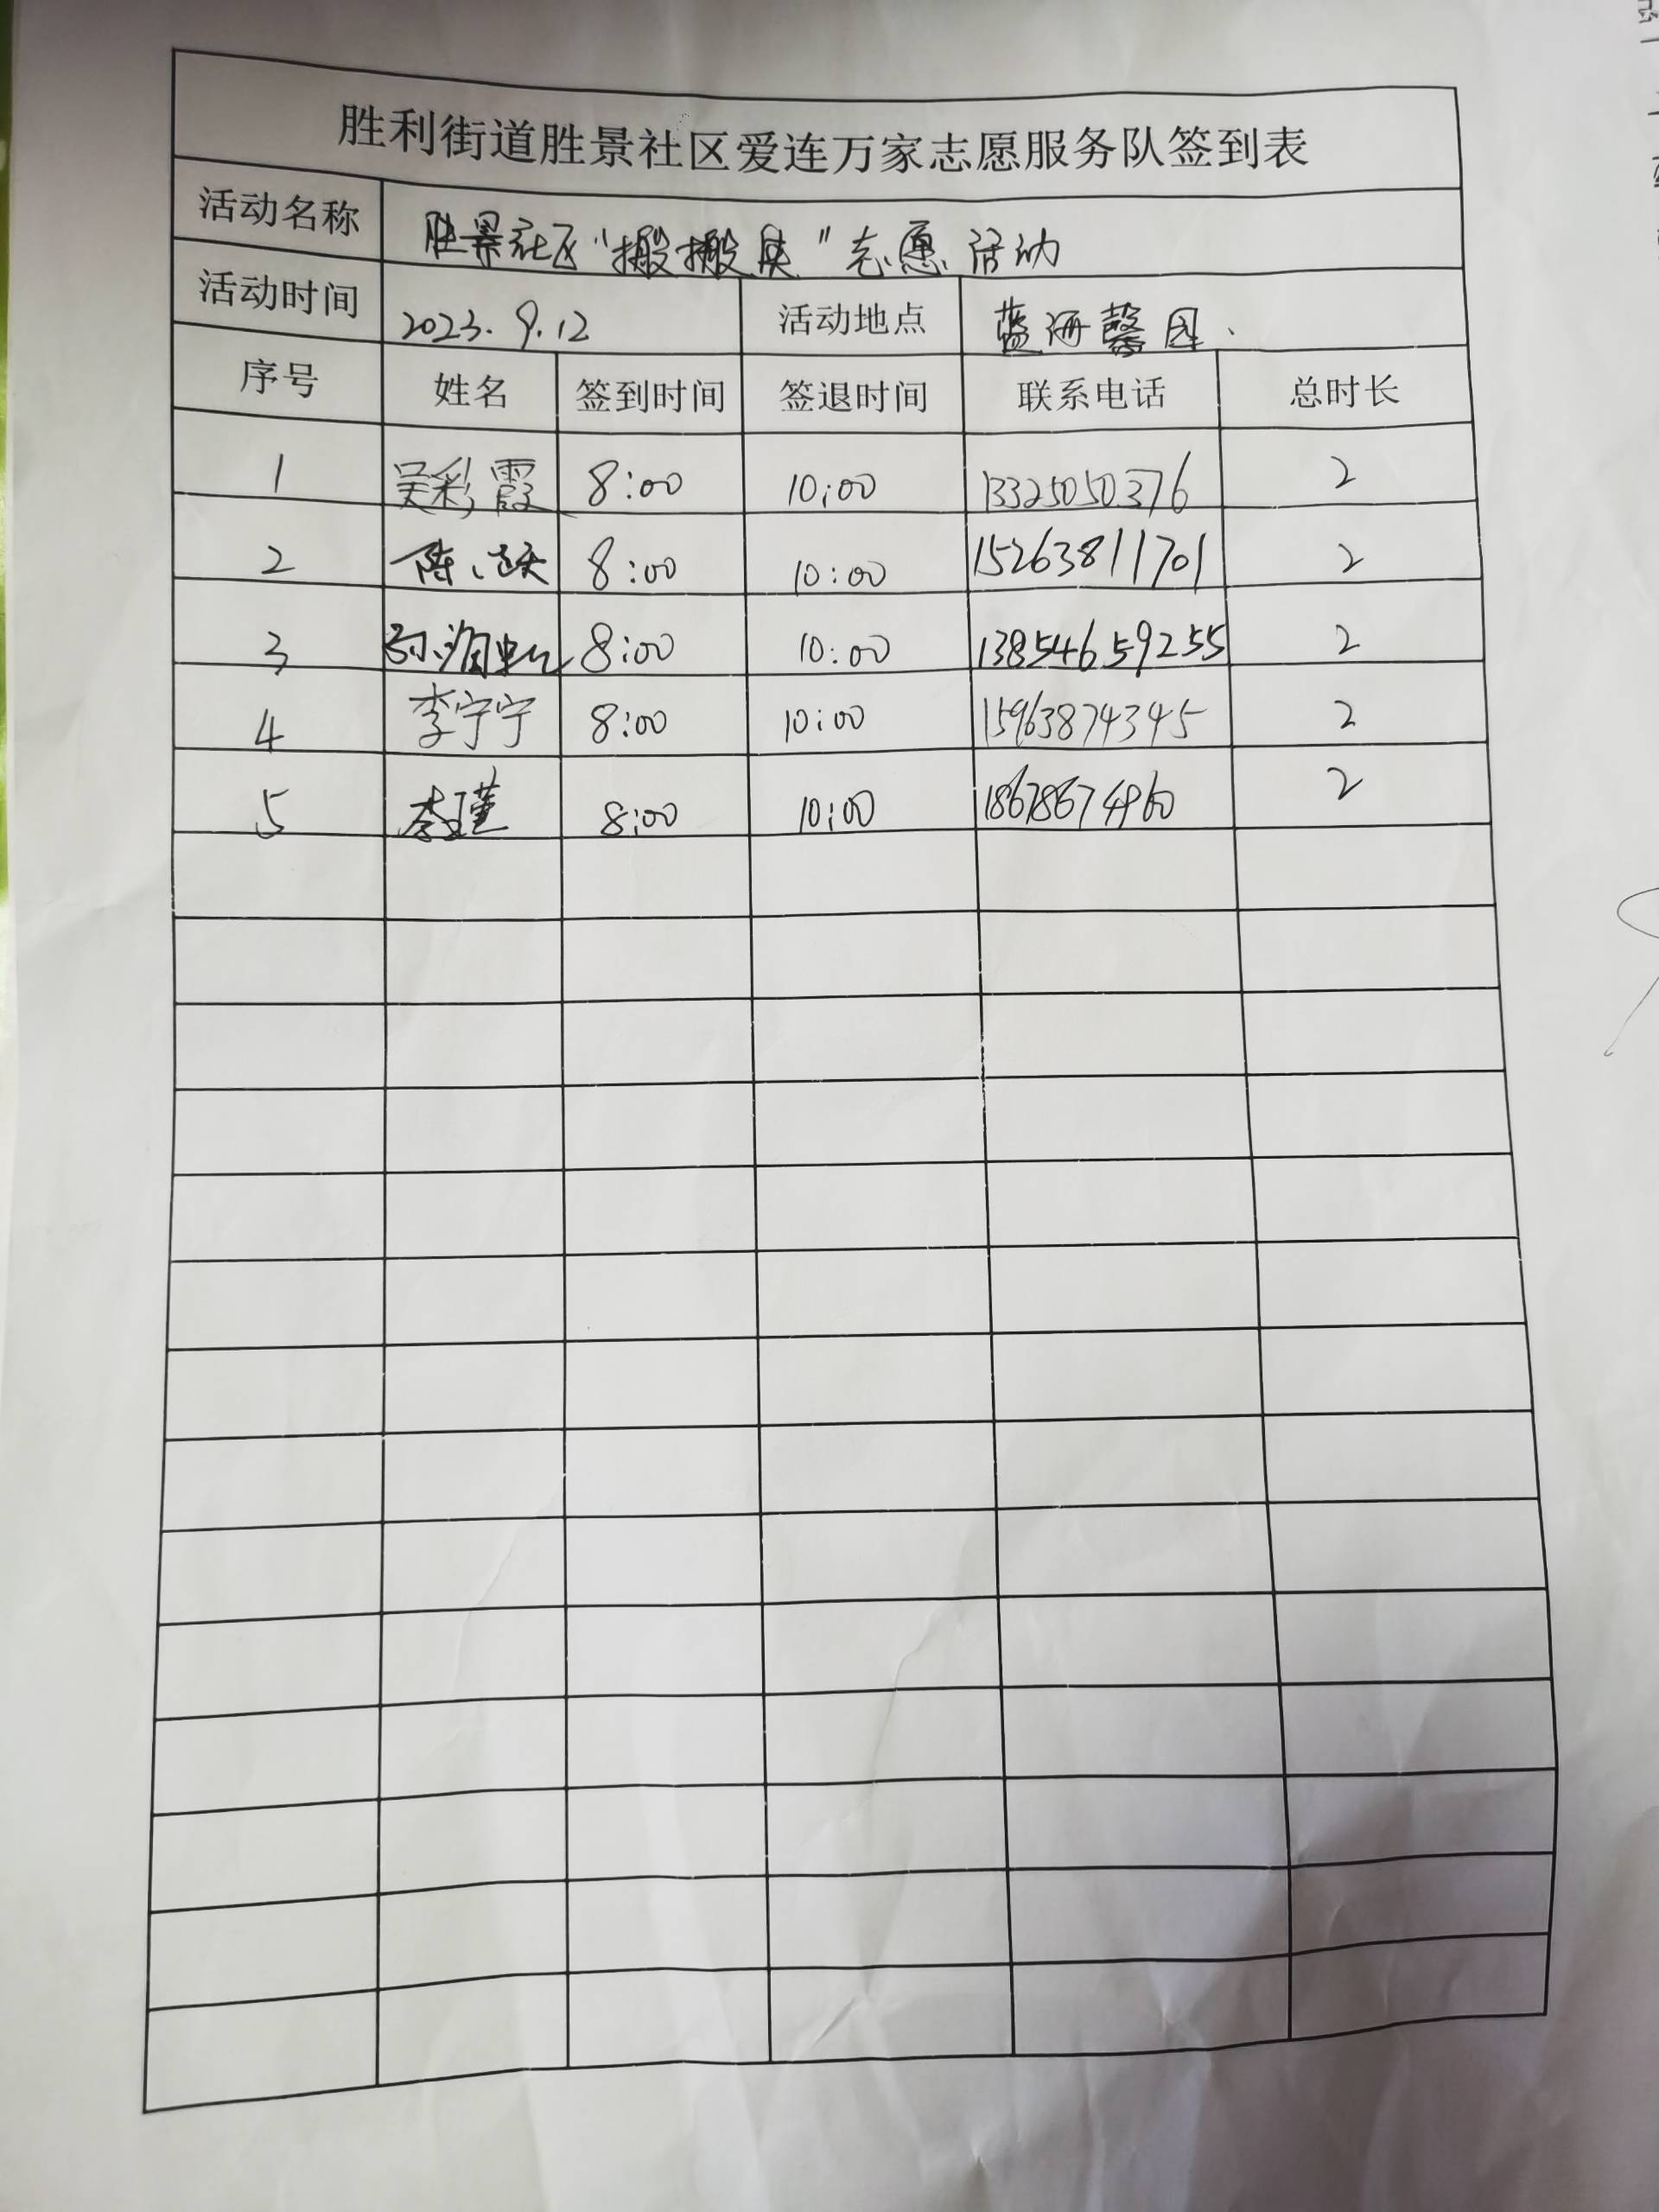 胜利街道胜景社区爱连万家志愿服务队签到表
活动名称 胜景社区“搬搬 ”志愿活动
活动时间 2023.9.12 活动地点 蓝海馨园
序号 姓名 签到时间 签退时间 联系电话 总时长
1 吴彩霞 8:00 10:00 13325050376 2
2 陈 8:00 10:00 15263811701 2
3 8:00 10:00 13854659255 2
4 李宁宁 8:00 10:00 15963874345 2
5 李瑾 8:00 10:00 18678674960 2